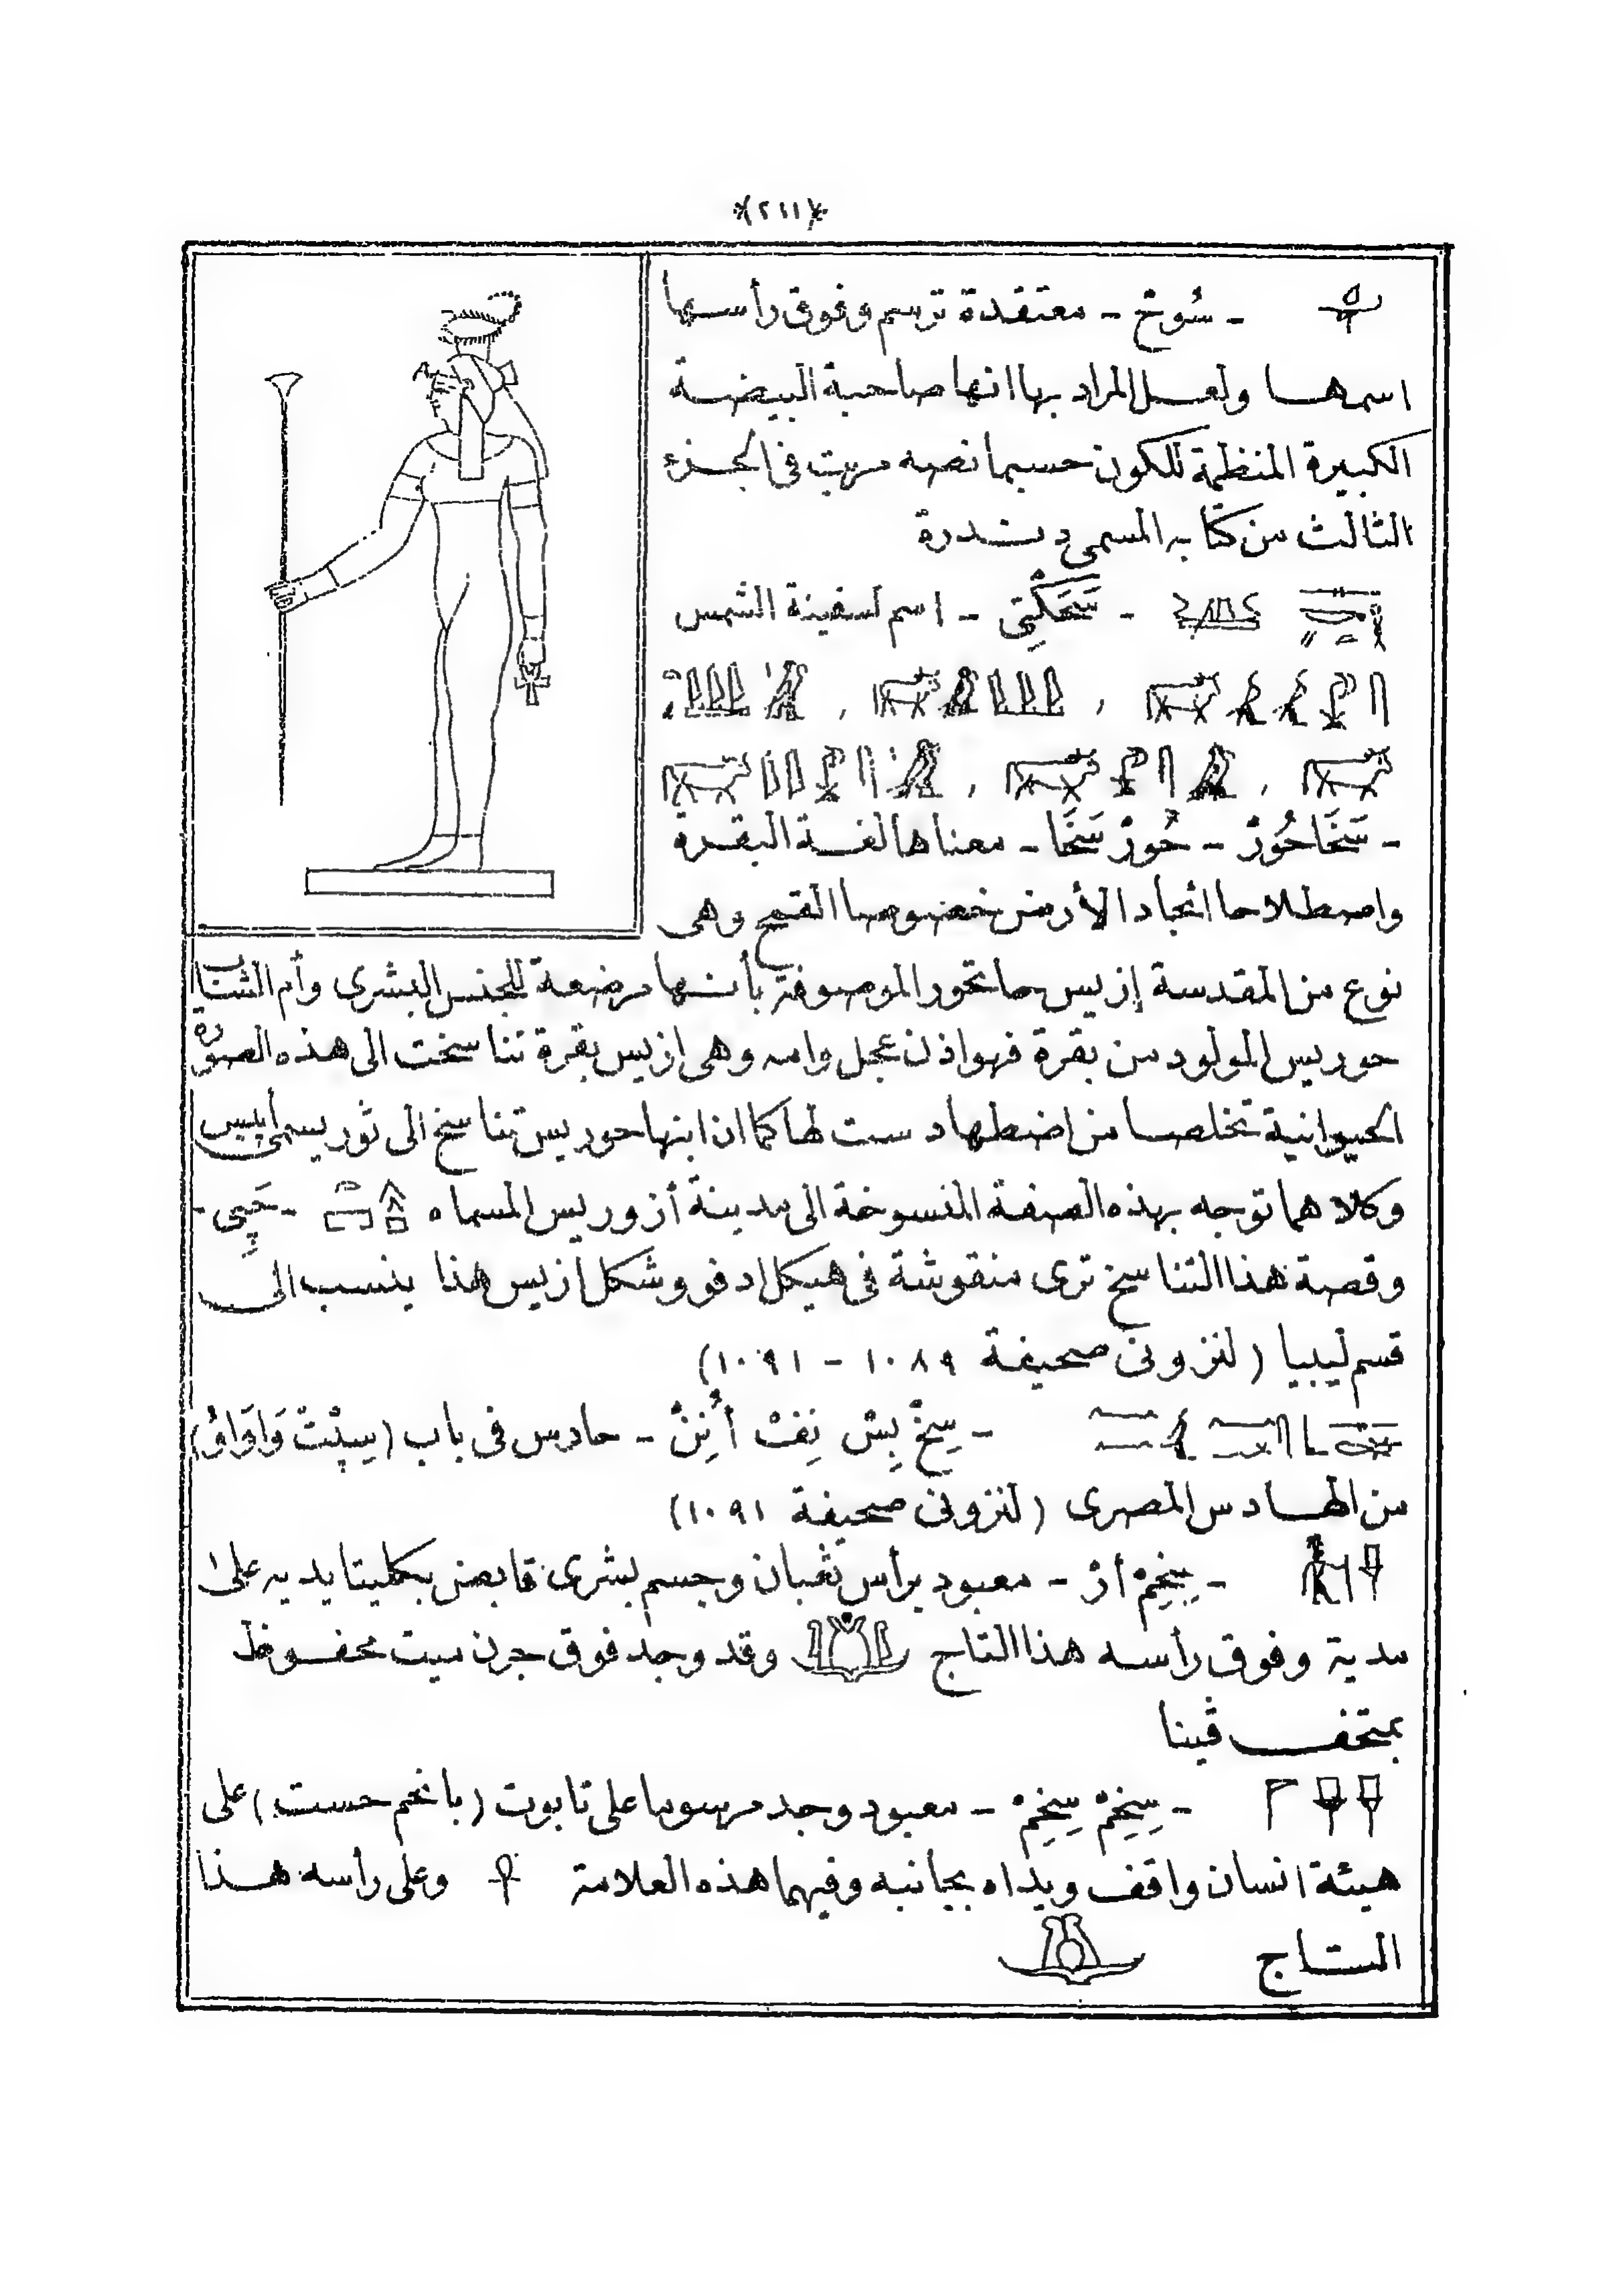 (٢١١)
- سُوخ - معتقدة ترسم وفوق رأسها
اسمها ولعل المراد بها انها صاحبة البيضة
الكبيرة المنظمة للكون حسبما نصه مريت فى الجزء
الثالث من كتابه المسمى دندرة
- سَحَكْتِى - اسم لسفينة الشمس
- سَخَاحُورْ - حُورْ سَخَا - معناها لغة البقرة
واصطلاحا انجاد الأرض خصوصا القمح وهى
نوع من المقدسة إزيس حاتحور الموصوفة بأنها مرضعة للجنس البشرى وأم الشاب
حوريس المولود من بقرة فهو اذن عجل وامه وهى ازيس بقرة تناسخت الى هذه الصورة
الحيوانية تخلصا من اضطهاد ست لها كما ان ابنها حوريس تناسخ الى ثور يسمى أپيس
وكلاهما توجه بهذه الصفة المنسوخة الى مدينة أزوريس المسماه - حَپِى -
وقصة هذا التناسخ ترى منقوشة فى هيكل ادفو وشكل ازيس هنا ينسب الى
قسم ليبيا (لنزونى صحيفة ١٠٨٩ - ١٠٩١)
- سِخْ بِسْ نِفْ أُنِنْ - حارس فى باب (سِپِتْ وَاوَاوُ)
من الهادس المصرى (لنزونى صحيفة ١٠٩١)
- سِخِمْ أرْ - معبود برأس ثعبان وجسم بشرى قابض بكلتا يديه على
مدية وفوق رأسه هذا التاج وقد وجد فوق جرن ميت محفوظ
بمتحف ڤينا
- سِخِمْ سِخِمْ - معبود وجد مرسوما على تابوت (بانحم حست) على
هيئة انسان واقف ويداه بجانبه وفيهما هذه العلامة وعلى رأسه هذا
التاج